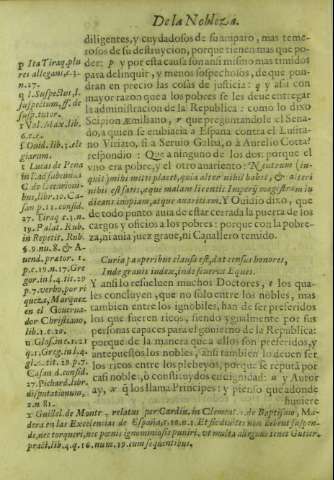 De la Nobleza.
diligentes, y cuydadosos de su amparo, mas teme-
rosos de su destruycion, porque tienen mas que po-
der: p y por esta causa son ansi mismo mas timidos
para delinquir, y menos sospechosos, de que pon-
dran en precio las cosas de justicia: q y asi con
mayor razon que a los pobres se les deue entregar
la administracion de la Republica: como lo dixo
Scipion Æmiliano, r que preguntandole el Sena-
do, a quien se embiaria a España contra el Lusita-
no Viriato, si a Seruio Galba, o a Aurelio Cotta?
respondio: Que a ninguno de los dos: porque el
vno era pobre, y el otro auariento:
quit, mihi placet, quia alter nihil habet, & alteri
nihil est satis, æque malam licentis Imperij magistram iu-
dicans inopiam, atque auaritiam. Y Ouidio dixo, que
de todo punto auia de estar cerrada la puerta de los
cargos y oficios a los pobres: porque con la pobre-
za, ni auia juez graue, ni Cauallero temido.
Curia pauperibus clausa est, dat census honores,
Inde grauis iudex, inde seuerus Eques.
Y ansi lo resueluen muchos Doctores, t los qua-
les concluyen, que no solo entre los nobles, mas
tambien entre los ignobles, han de ser preferidos
los que fueren ricos, siendo ygualmente por sus
personas capaces para el gouierno de la Republica:
porque de la manera que a ellos son preferidos, y
antepuestos los nobles, ansi tambien lo deuen ser
los ricos entre los plebeyos, porque se reputa por
casi noble, o constituydos en dignidad: u y Autor
ay, x que los llama Principes: y pienso que adonde
huuiere
p Ita Tiraq. plu
res allegans, c.3.
n.17.
q l. Suspectus, ff.
suspectum, ff. de
susp. tutor.
r Val. Max. lib.
6. c.4.
s Ouid. lib. 3. ele
giarum.
t Lucas de Pena
C. de
bus, lib. 10.
san p.12. consid.
27. Tiraq c.3. n.
19. Palat. Rub.
in Repetit. Rub.
§.9. nu. 8. &
uend. prator. 1.
p. c.19. n.17. Gre
gor. in l.4. tit. 29
p.7. verbo, por ri
queza, Marquez
en el Gouerna-
dor Christiano,
lib. 1. c.20.
u Glos. in c.21
q.1. Greg. in l.4.
glo. tit. 29. p.7.
Casan. d. consid.
27. Pichard. lib.
disputationum,
2. n 81.
x Guillel. de Monte, relatus per Cardin. in Clement. 1. de Baptismo, Ma-
dera en las Excelencias de España, c.10. n.1. Et sic diuites non debent suspen-
de, nec torqueri, nec pœnis ignominiosis puniri, vt multa allegans tenet Gutier.
pract. lib. 4. q. 16. num. 19. cum sequentibus.